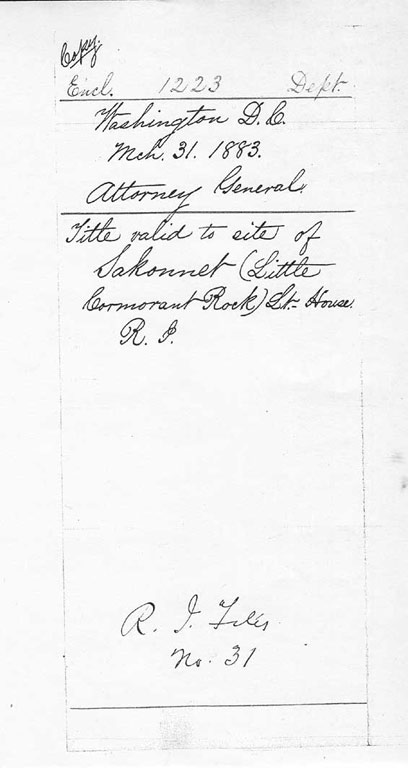 Copy.
Encl. 1223 Dept.
Washington D.C.
Mch. 31. 1883.
Attorney General.
Title valid to site of
Sakonnet (Little
Cormorant Rock) Lt. House.
R. I.
R. I. Files
No. 31